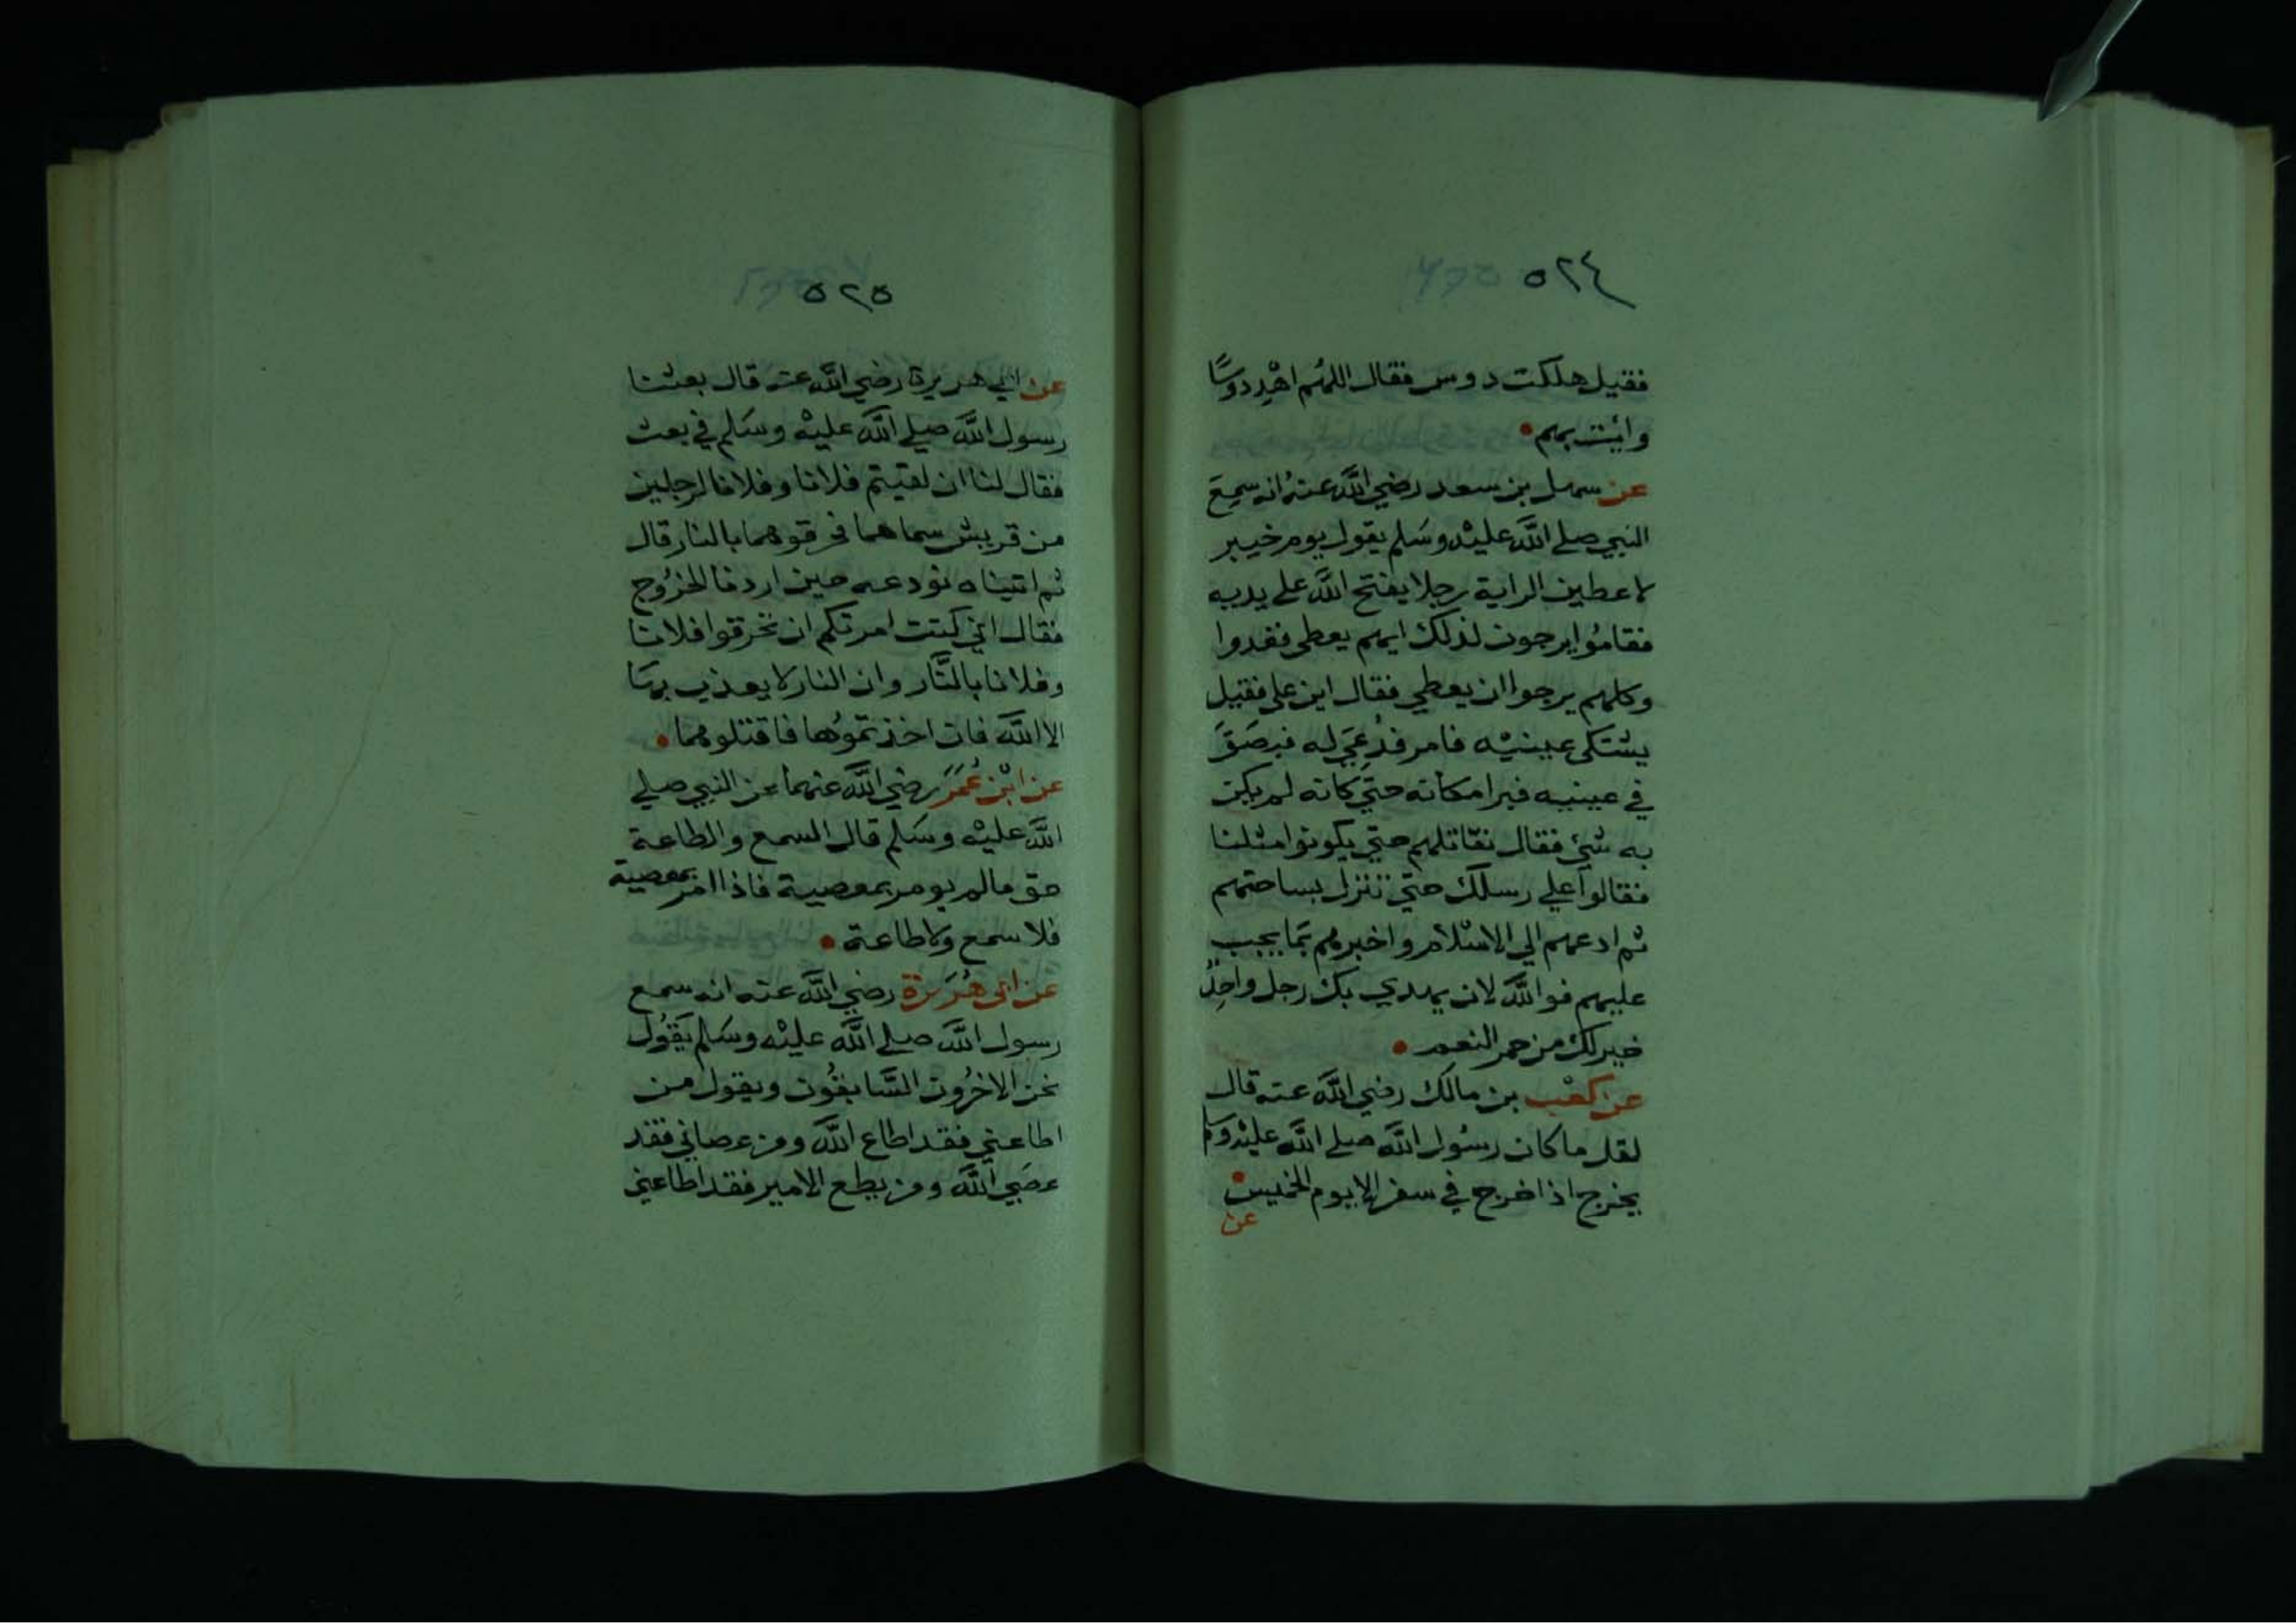 ٥٢٤
فقيل هلكت دوس فقال اللهُم اهْدِ دوسًا
وائت بهم
عن سهل بن سعد رضي الله عنهُ انه سمِعَ
النبي صلي الله عليْه وسَلم يقول يوم خيبر
لاعطين الراية رجلا يفتح الله علي يديه
فقامُوا يرجون لذلك ايهم يعطي فغدوا
وكلهم يرجوا ان يعطي فقال اين علي فقيل
يشتكي عينيْه فامر فدُعِيَ له فبصَقَ
في عينيه فبرا مكانه حتي كانه لم يكن
به شئ فقال نقاتلهم حتي يكونوا مثلنا
فقالوا علي رسلك حتي تنزل بساحتهم
ثم ادعهم الي الاسْلام واخبرهم بمَا يجب
عليهم فوالله لان يهدي بك رجل واحِدٌ
خير لك من حمر النعم
عن كعْب بن مالك رضي الله عنه قال
لقل ما كان رسُول الله صلي الله عليْه وسلم
يخرج اذا خرج في سفر الا يوم الخميس
عن
٥٢٥
عن ابي هريرة رضي الله عنه قال بعثنا
رسول الله صلي الله عليْه وسَلم في بعث
فقال لنا ان لقيتم فلانا وفلانا لرجلين
من قريش سماهما فحرقوهما بالنار قال
ثم اتيناه نودعه حين اردنا الخرُوج
فقال اني كنت امرتكم ان تحرقوا فلانا
وفلانا بالنَّار وان النار لا يعذب بهَا
الا الله فان اخذتمُوهما فاقتلوهما
عن ابْن عُمَرَ رضي الله عنهما عن النبي صلي
الله عليْه وسَلم قال السمع والطاعة
حق مالم يومر بمعصية فاذا امر بمعصية
فلا سمع ولا طاعة
عن ابي هُرَيرة رضي الله عنه انه سمع
رسول الله صلي الله عليْه وسَلم يَقُول
نحن الاخرُون السَّابقُون ويقول من
اطاعني فقد اطاع الله ومن عصاني فقد
عصَي الله ومن يطع الامير فقد اطاعني